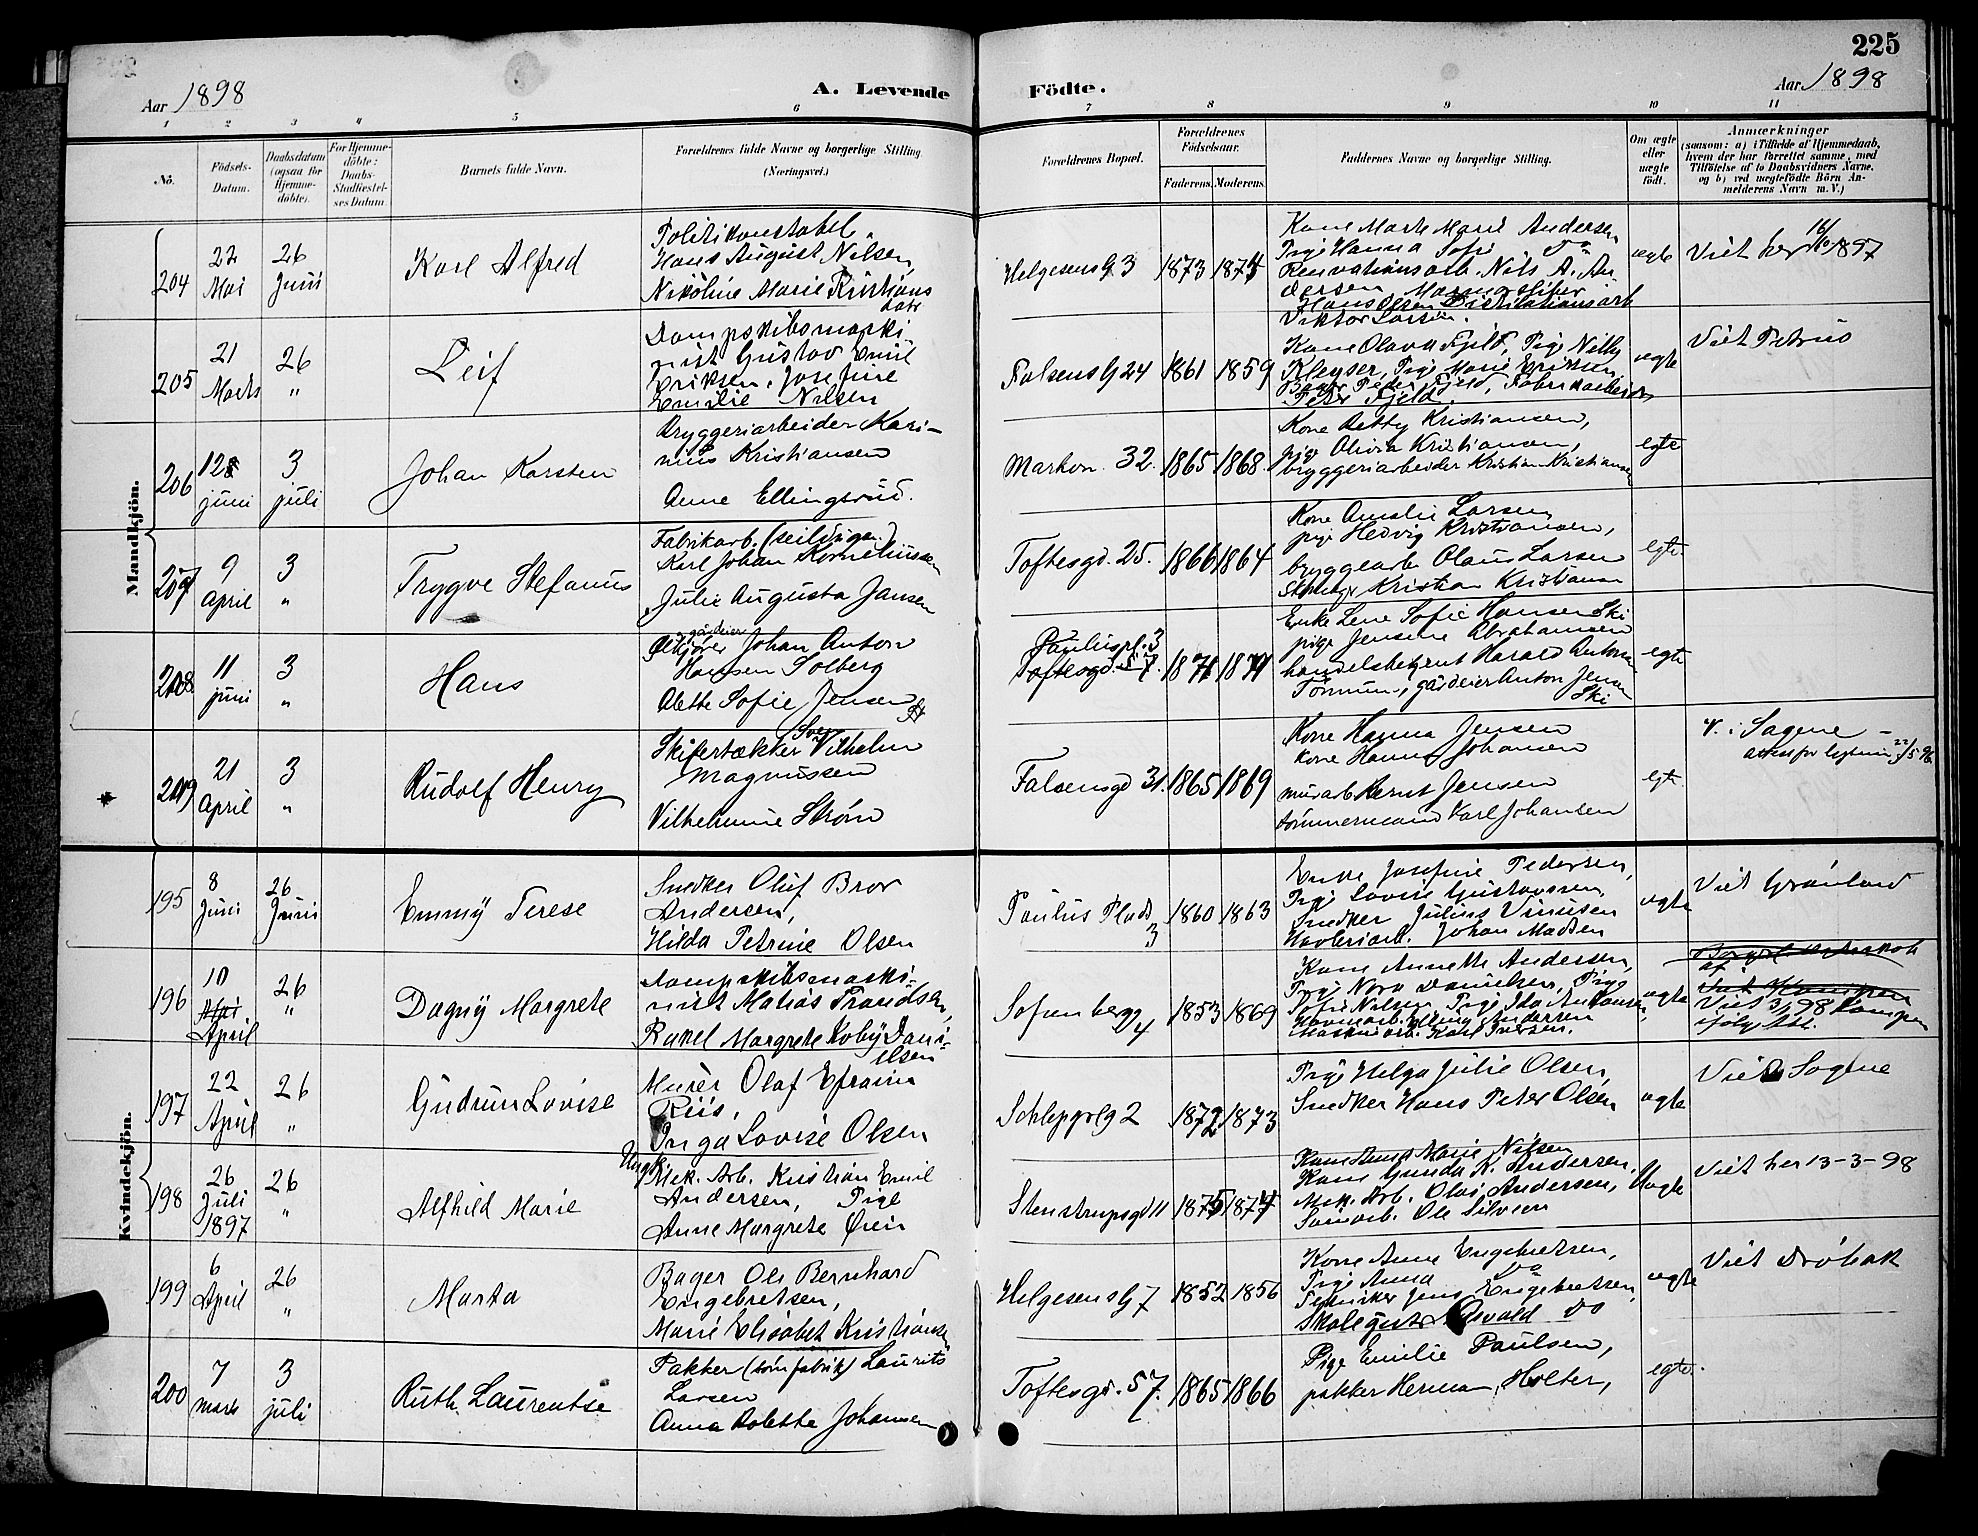 225
Aar 1898
A. Levende
Födte.
Aar 1898
1 2 3 4 5 6 7 8 9 10 11
No.
Födsels-Datum.
Daabsdatum (ogsaa for Hjemmedöbte).
For Hjemmedöbte: Daabs-Stadfæstelses Datum
Barnets fulde Navn.
Forældrenes fulde Navne og borgerlige Stilling. (Næringsvei.)
Forældrenes Bopæl.
Forældrenes Födselsaar.
Faderens. Moderens.
Faddernes Navne og borgerlige Stilling.
Om ægte eller uægte födt.
Anmærkninger
(saasom: a) i Tilfælde af Hjemmedaab, hvem der har forrettet samme, med Tilföielse af to Daabsvidners Navne, og b) ved uægtefödte Börn Anmelderens Navn m. V.)
Mandkjön.
204
22 Mai
26 Juni
Karl Alfred
Politikonstabel
Hans August Nilsen,
Nikoline Marie Kristians
datr
Helgesens g. 3
1873 1874
Kone Marte Marie Andersen
Pige Hanna Sofie Do
Renovationsarb. Nils A. An
dersen, Marmorsliber
Hans Olsen Distilationsarb
Viktor Larsen.
ægte
Viet her 16/10 1897
205
21 Marts
26 "
Leif
Dampskibsmaski
nist Gustav Emil
Eriksen, Josefine
Emilie Nilsen
Falsens g 24
1861 1859
Kone Olava Fjeld, Pige Nilly
Kleyser, Pige Marie Eriksen,
Bager Peder Fjeld, Fabrikarbeider
Peter Fjeld.
ægte
Viet Petrus
206
12 juni
3 juli
Johan Karsten
Bryggeriarbeider Mari-
nius Kristiansen
Anne Ellingsrud.
Markvn. 32.
1865 1868
Kone Betty Kristiansen,
pige Olivia Kristiansen,
bryggeriarbeider Kristian Kristiansen
egte
207
9 April
3 "
Trygve Stefanus
Fabrikarb. (seildugen)
Karl Johan Korneliussen
Julie Augusta Jansen
Toftesgd. 25.
1866 1864
Kone Amalie Larsen,
pige Hedvig Kristiansen,
bryggearb Olaus Larsen
Kristian Kristiansen
egte.
208
11 juni
3 "
Hans
gårdeier
Johan Anton
Hansen Solberg
Alette Sofie Jensen
Pauluspl. 3
Toftesgd. 57.
1871 1874
Enke Lene Sofie Hansen Ski
pige Jensine Abrahamsen
handelsbetjent Harald Anton
gårdeier Anton Jensen
Ski
egte
209
21 April
3 "
Rudolf Henry
Skifertækker Sven Vilhelm
Magnussen
Vilhelmine Strøm
Falsensgd 31.
1865 1869
Kone Hanna Jensen
kone Hanna Johansen
murarb Bernt Jensen
tømmermand Karl Johansen
egt.
V. i Sagene -
attest for lysning 22/5 96
Kvindekjön.
195
8 Juni
26 Juni
Emmy Terese
Snedker Oluf Bror
Andersen,
Hilda Petrine Olsen
Paulus Plads
3
1860 1863
Enke Josefine Pedersen,
Pige Lovise Gustavsen
Snedker Julius Vinusen
Høvleriarb. Johan Madsen
ægte
Viet Grønland
196
10 April
26 "
Dagny Margrete
Dampskibsmaski-
nist Matias Trandsen,
Rakel Margrete Koby Dani-
elsen
Sofienberg g 4
1853 1869
Kone Annette Andersen,
Pige Nora Danielsen, Pige
Sofie Nilsen, Pige Ida Andersen,
Havnearb. Andersen
Maskinarb. Karl Iversen.
ægte
Viet Kampen
Viet 3/1 98 Kampen
ifølge Att.
197
22 April
26 "
Gudrun Lovise
Murer Olaf Efraim
Riis,
Inga Lovise Olsen
Schleppelg 2
1872 1873
Pige Helga Julie Olsen,
Snedker Hans Peter Olsen
ægte
Viet Sagene
198
26 Juli 1897
26 "
Alfhild Marie
Ungk.
Mek. Arb. Kristian Emil
Andersen, Pige
Anne Margrete Øien
Stenstrupsgd 11
1875 1874
Kone Anna Marie Nilsen
Kone Gunda K. Andersen,
Mek. Arb. Olaf Andersen,
Ole Silveen
Uægte
Viet her 13-3-98
199
6 April
26 "
Marta
Bager Ole Bernhard
Engebretsen,
Marie Elisabet Kristiansen
Helgesens g 7
1852 1856
Kone Anne Engebretsen,
Pige Anna Do
Tekniker Jens Engebretsen,
Skolegut Osvald Do
ægte
Viet Drøbak
200
7 marts
3 juli
Ruth Laurentse
Pakker (sømfabrik) Laurits
Larsen
Anna Bolette Johansen
Toftesgd. 57.
1865 1866
Pige Emilie Paulsen,
pakker Herman Holter,
egte.